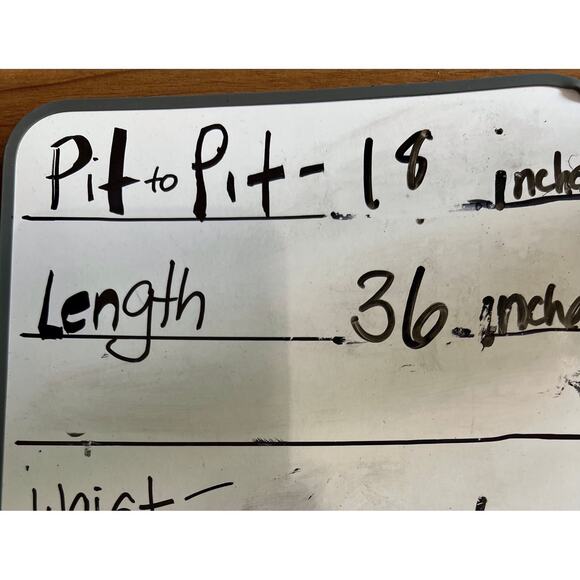 Pit to Pit - 18 inche
Length 36 inche
Waist -